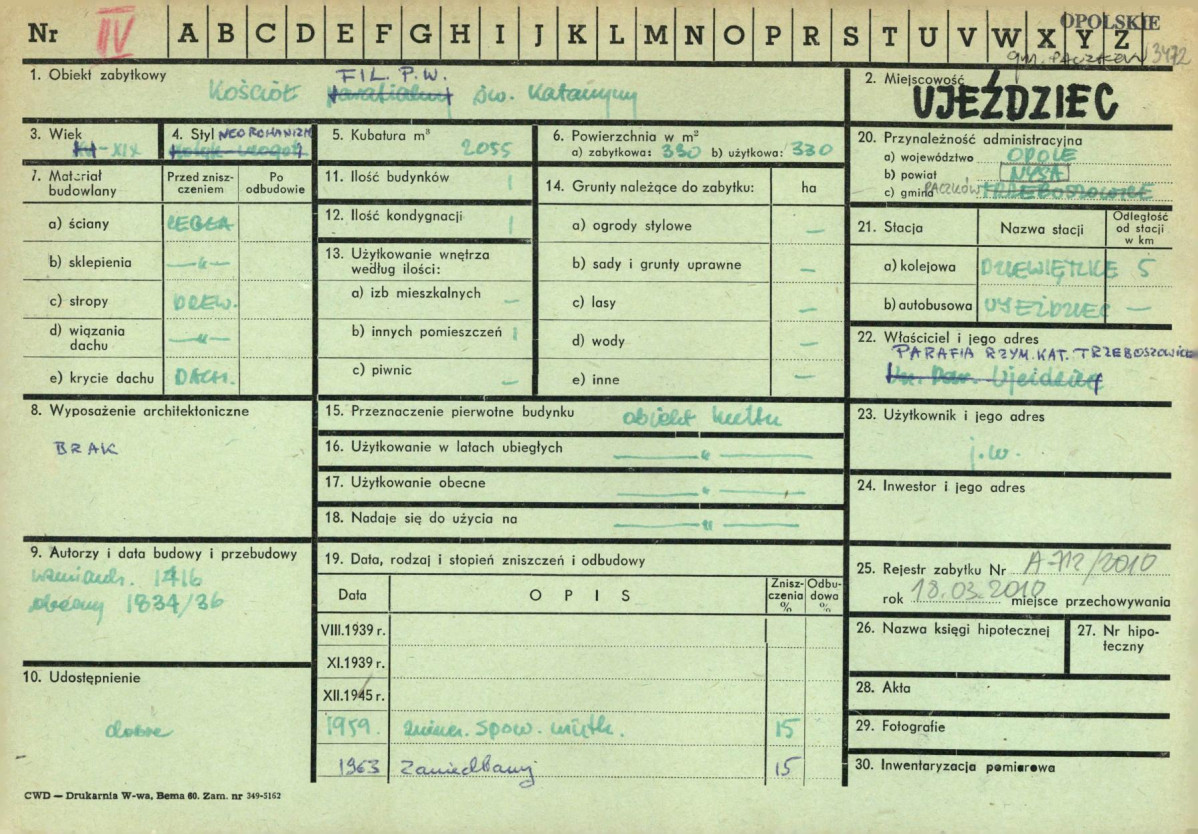 Nr IV A B C D E F G H I J K L M N O P R S T U V W X Y Z
OPOLSKIE
gm. PACZKÓW 3472
1. Obiekt zabytkowy
FIL. P.W.
Kościół parafialny św. Katarzyny
2. Miejscowość
UJEŹDZIEC
3. Wiek
XIX
4. Styl NEOROMANIZM
5. Kubatura m³
2055
6. Powierzchnia w m²
a) zabytkowa: 330 b) użytkowa: 330
7. Materiał budowlany
Przed zniszczeniem
Po odbudowie
a) ściany CEGŁA
b) sklepienia —"—
c) stropy DREW.
d) wiązania dachu —"—
e) krycie dachu DACH.
8. Wyposażenie architektoniczne
BRAK
9. Autorzy i data budowy i przebudowy
wzmiank. 1416
obecny 1834/36
10. Udostępnienie
dobre
11. Ilość budynków 1
12. Ilość kondygnacji 1
13. Użytkowanie wnętrza według ilości:
a) izb mieszkalnych —
b) innych pomieszczeń 1
c) piwnic —
14. Grunty należące do zabytku: ha
a) ogrody stylowe —
b) sady i grunty uprawne —
c) lasy —
d) wody —
e) inne —
15. Przeznaczenie pierwotne budynku obiekt kultu
16. Użytkowanie w latach ubiegłych —"—
17. Użytkowanie obecne —"—
18. Nadaje się do użycia na —"—
19. Data, rodzaj i stopień zniszczeń i odbudowy
Data OPIS Zniszczenia % Odbudowa %
VIII.1939 r.
XI.1939 r.
XII.1945 r.
1959. zniszcz. spow. wilg. 15
1963 Zaniedbany 15
20. Przynależność administracyjna
a) województwo OPOLE
b) powiat NYSA
c) gmina PACZKÓW TRZEBOSZOWICE
21. Stacja
Nazwa stacji
Odległość od stacji w km
a) kolejowa DZIEWIĘTLICE 5
b) autobusowa UJEŹDZIEC —
22. Właściciel i jego adres
PARAFIA RZYM. KAT. TRZEBOSZOWICE
23. Użytkownik i jego adres
j.w.
24. Inwestor i jego adres
25. Rejestr zabytku Nr A-712/2010
rok 18.03.2010 miejsce przechowywania
26. Nazwa księgi hipotecznej
27. Nr hipoteczny
28. Akta
29. Fotografie
30. Inwentaryzacja pomiarowa
CWD — Drukarnia W-wa, Bema 60. Zam. nr 349-5162